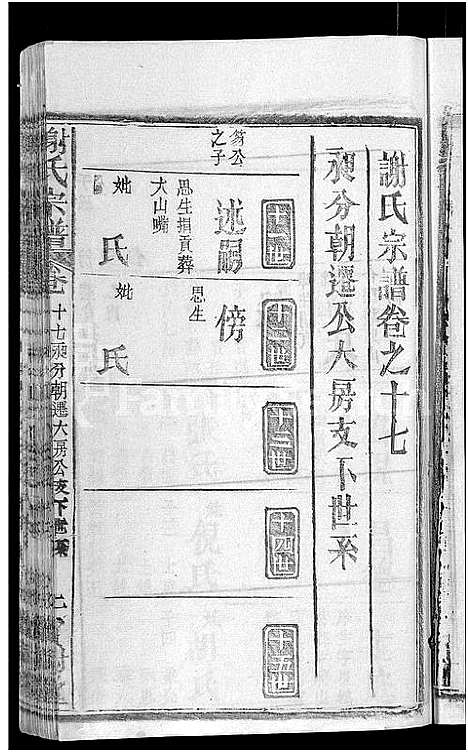 謝氏宗譜卷之十七
分朝遷公大房支下世系
十一世
十二世
十三世
十四世
十五世
篛公
之子
述嗣
思生捐貢葬
大山嘴
妣 氏
傍
思生
妣 氏
謝氏宗譜 卷 十七 分朝遷大房公支下世系